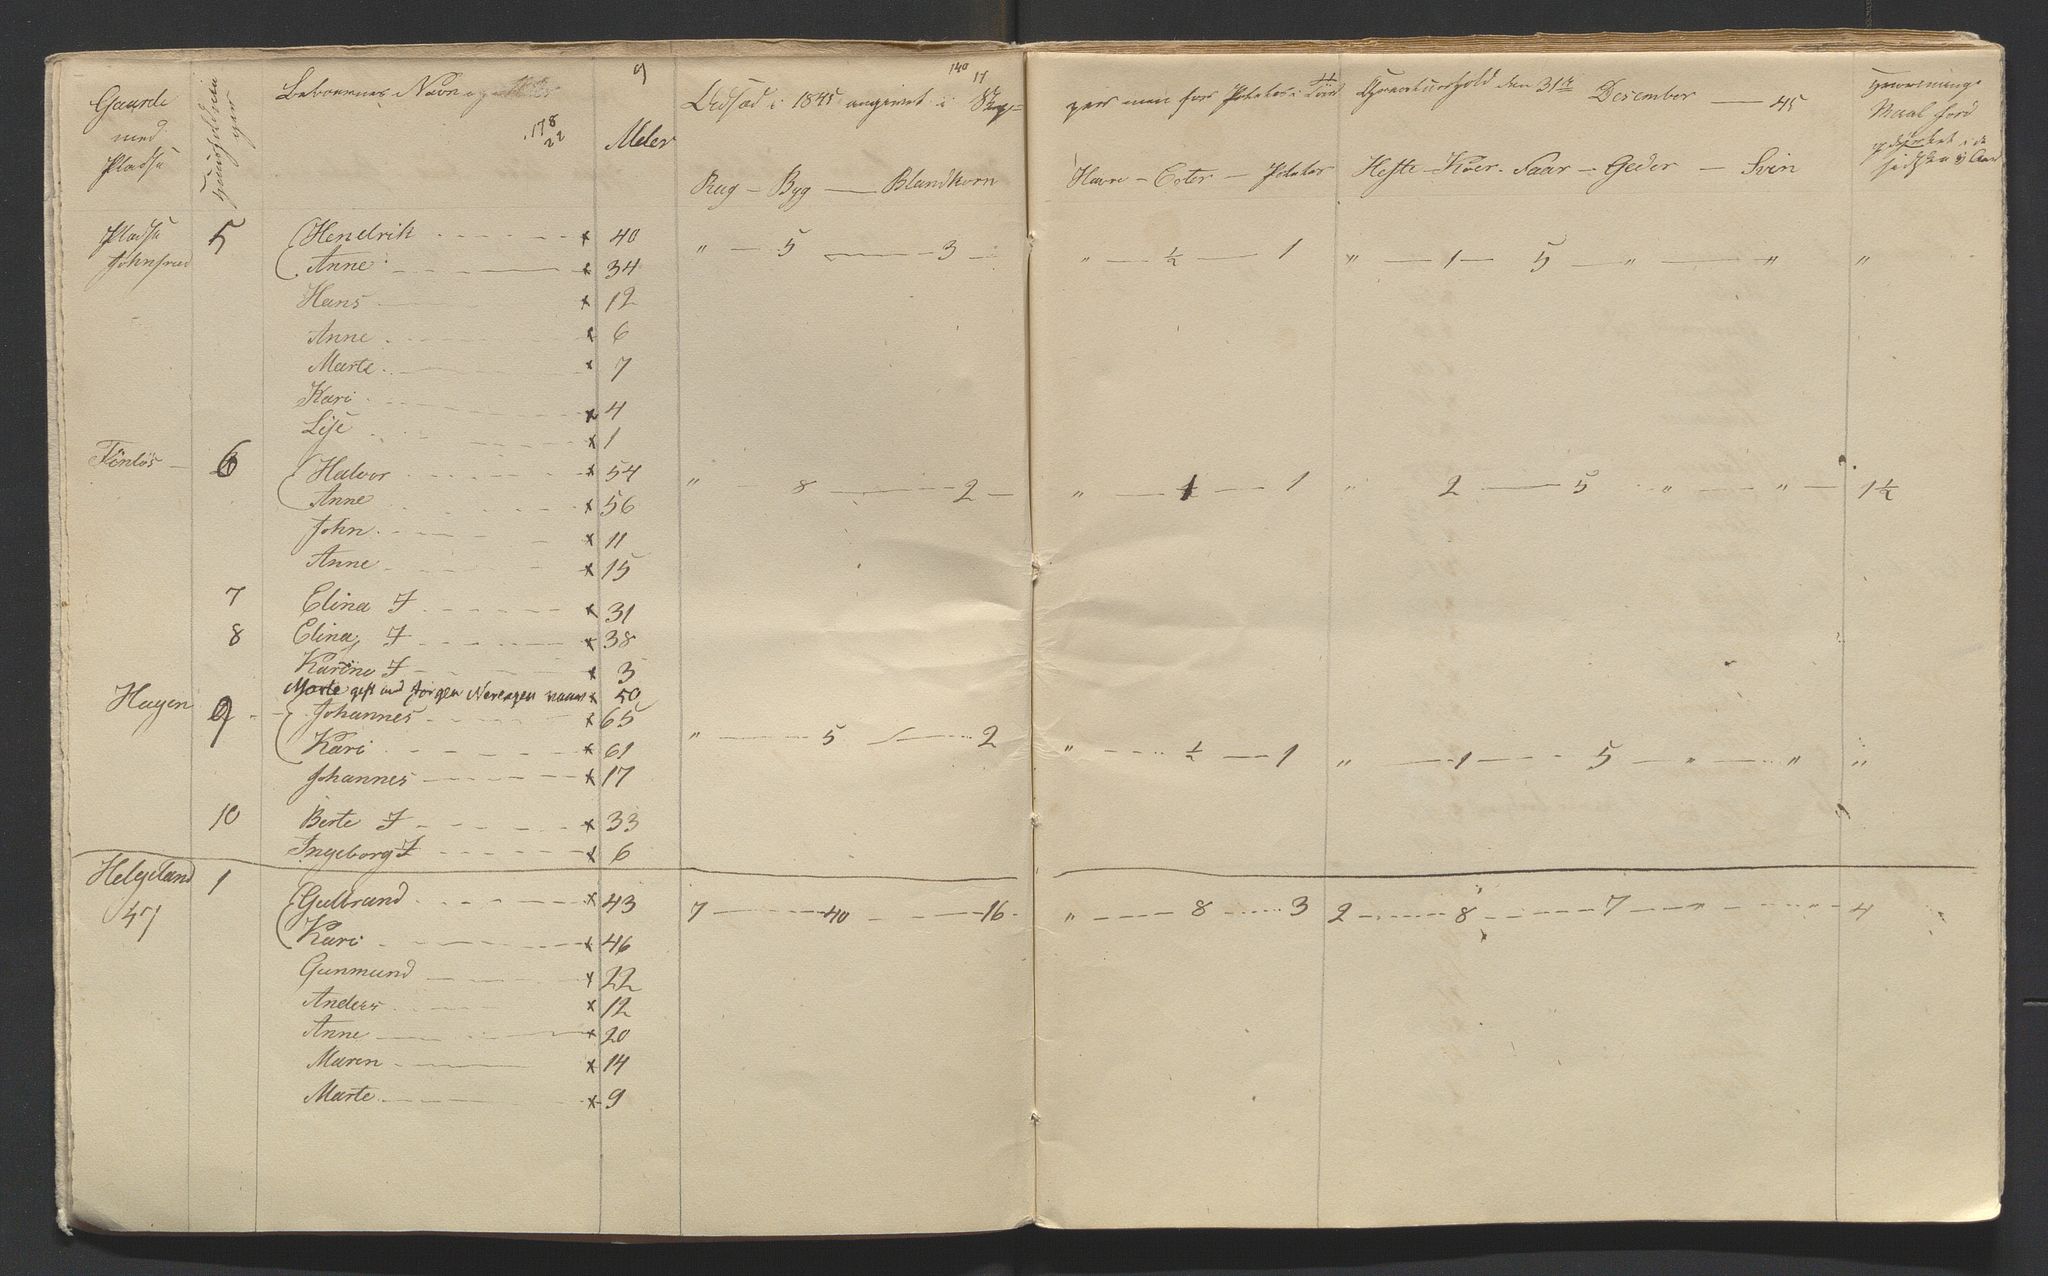 Gaarde med Pladse
Huusholdninger
Beboernes Navne og
178
22
9
Alder
140
11
Udsæd i 1845 angivet i Skjep=
Rug - Byg - Blandkorn
per men for Poteter i Tønd
Havre - Erter - Poteter
Creaturhold den 31te Desember - 45
Heste - Køer - Faar - Geder - Svin
Maal Jord
Pladse 5 Hendrik x 40
Johnsrud Anne x 34 " - 5 - 3 - " - ½ - 1 " - 1 - 5 - " - " "
Hans x 12
Anne x 6
Marte x 7
Kari x 4
Lise x 1
Tønløs - 6 Halvor x 54
Anne x 56 " - 8 - 2 - " - 1 - 1 " 2 - 5 " - " - 1½
John x 11
Anne x 15
7 Elina F x 31
8 Elina F x 38
Karine F x 3
Marte gift med Jørgen Nereagen x 50
Hagen 9 Johannes x 65
Kari x 61 " - 5 - 2 " - ½ - 1 " - 1 - 5 - " - " "
Johannes x 17
10 Berte F x 33
Ingeborg F x 6
Helgeland 1 Gulbrand x 43 7 - 40 - 16 - " - 8 - 3 2 - 8 - 7 - " - " - 4
47 Kari x 46
Gunmund x 22
Anders x 12
Anne x 20
Maren x 14
Marte x 9